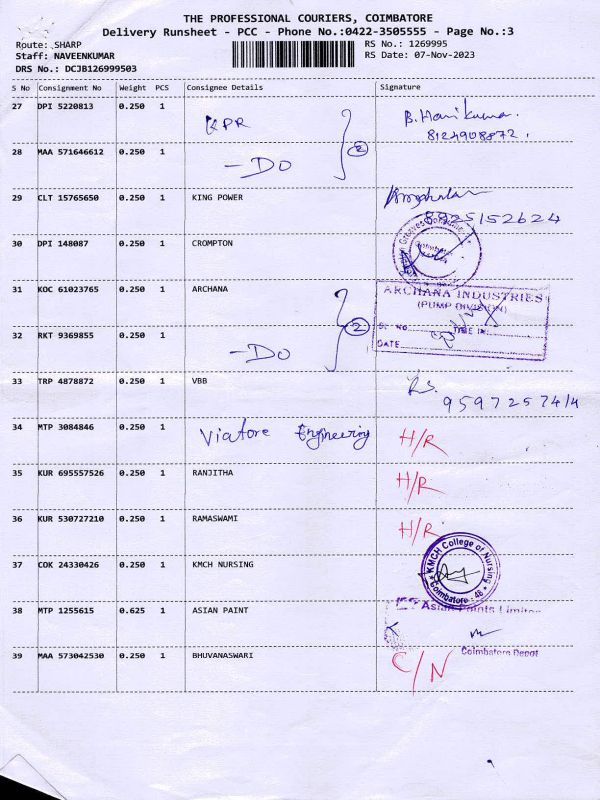 THE PROFESSIONAL COURIERS, COIMBATORE
Delivery Runsheet - PCC - Phone No.:0422-3505555 - Page No.:3
Route: SHARP
RS No.: 1269995
Staff: NAVEENKUMAR
RS Date: 07-Nov-2023
DRS No.: DCJB126999503
S No Consignment No Weight PCS Consignee Details Signature
27 DPI 5220813 0.250 1 KPR B. Harikumar
8124908872.
28 MAA 571646612 0.250 1 -DO 2
29 CLT 15765650 0.250 1 KING POWER
8925152624
30 DPI 148087 0.250 1 CROMPTON
31 KOC 61023765 0.250 1 ARCHANA ARCHANA INDUSTRIES
(PUMP DIVISION)
32 RKT 9369855 0.250 1 -DO 2 SL. NO. TIME IN:
DATE
33 TRP 4878872 0.250 1 VBB RS.
9597257414
34 MTP 3084846 0.250 1 Viatore Engineering H/R
35 KUR 695557526 0.250 1 RANJITHA H/R
36 KUR 530727210 0.250 1 RAMASWAMI H/R
37 COK 24330426 0.250 1 KMCH NURSING KMCH College of Nursing Coimbatore - 48
38 MTP 1255615 0.625 1 ASIAN PAINT Asian Paints Limited
Coimbatore Depot
39 MAA 573042530 0.250 1 BHUVANASWARI C/N